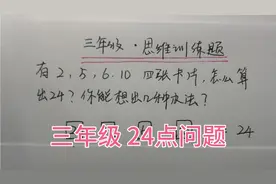 三年级·思维训练题
有2,5,6.10四张卡片,怎么算
出24?你能想出几种方法?
三年级 24点问题
24